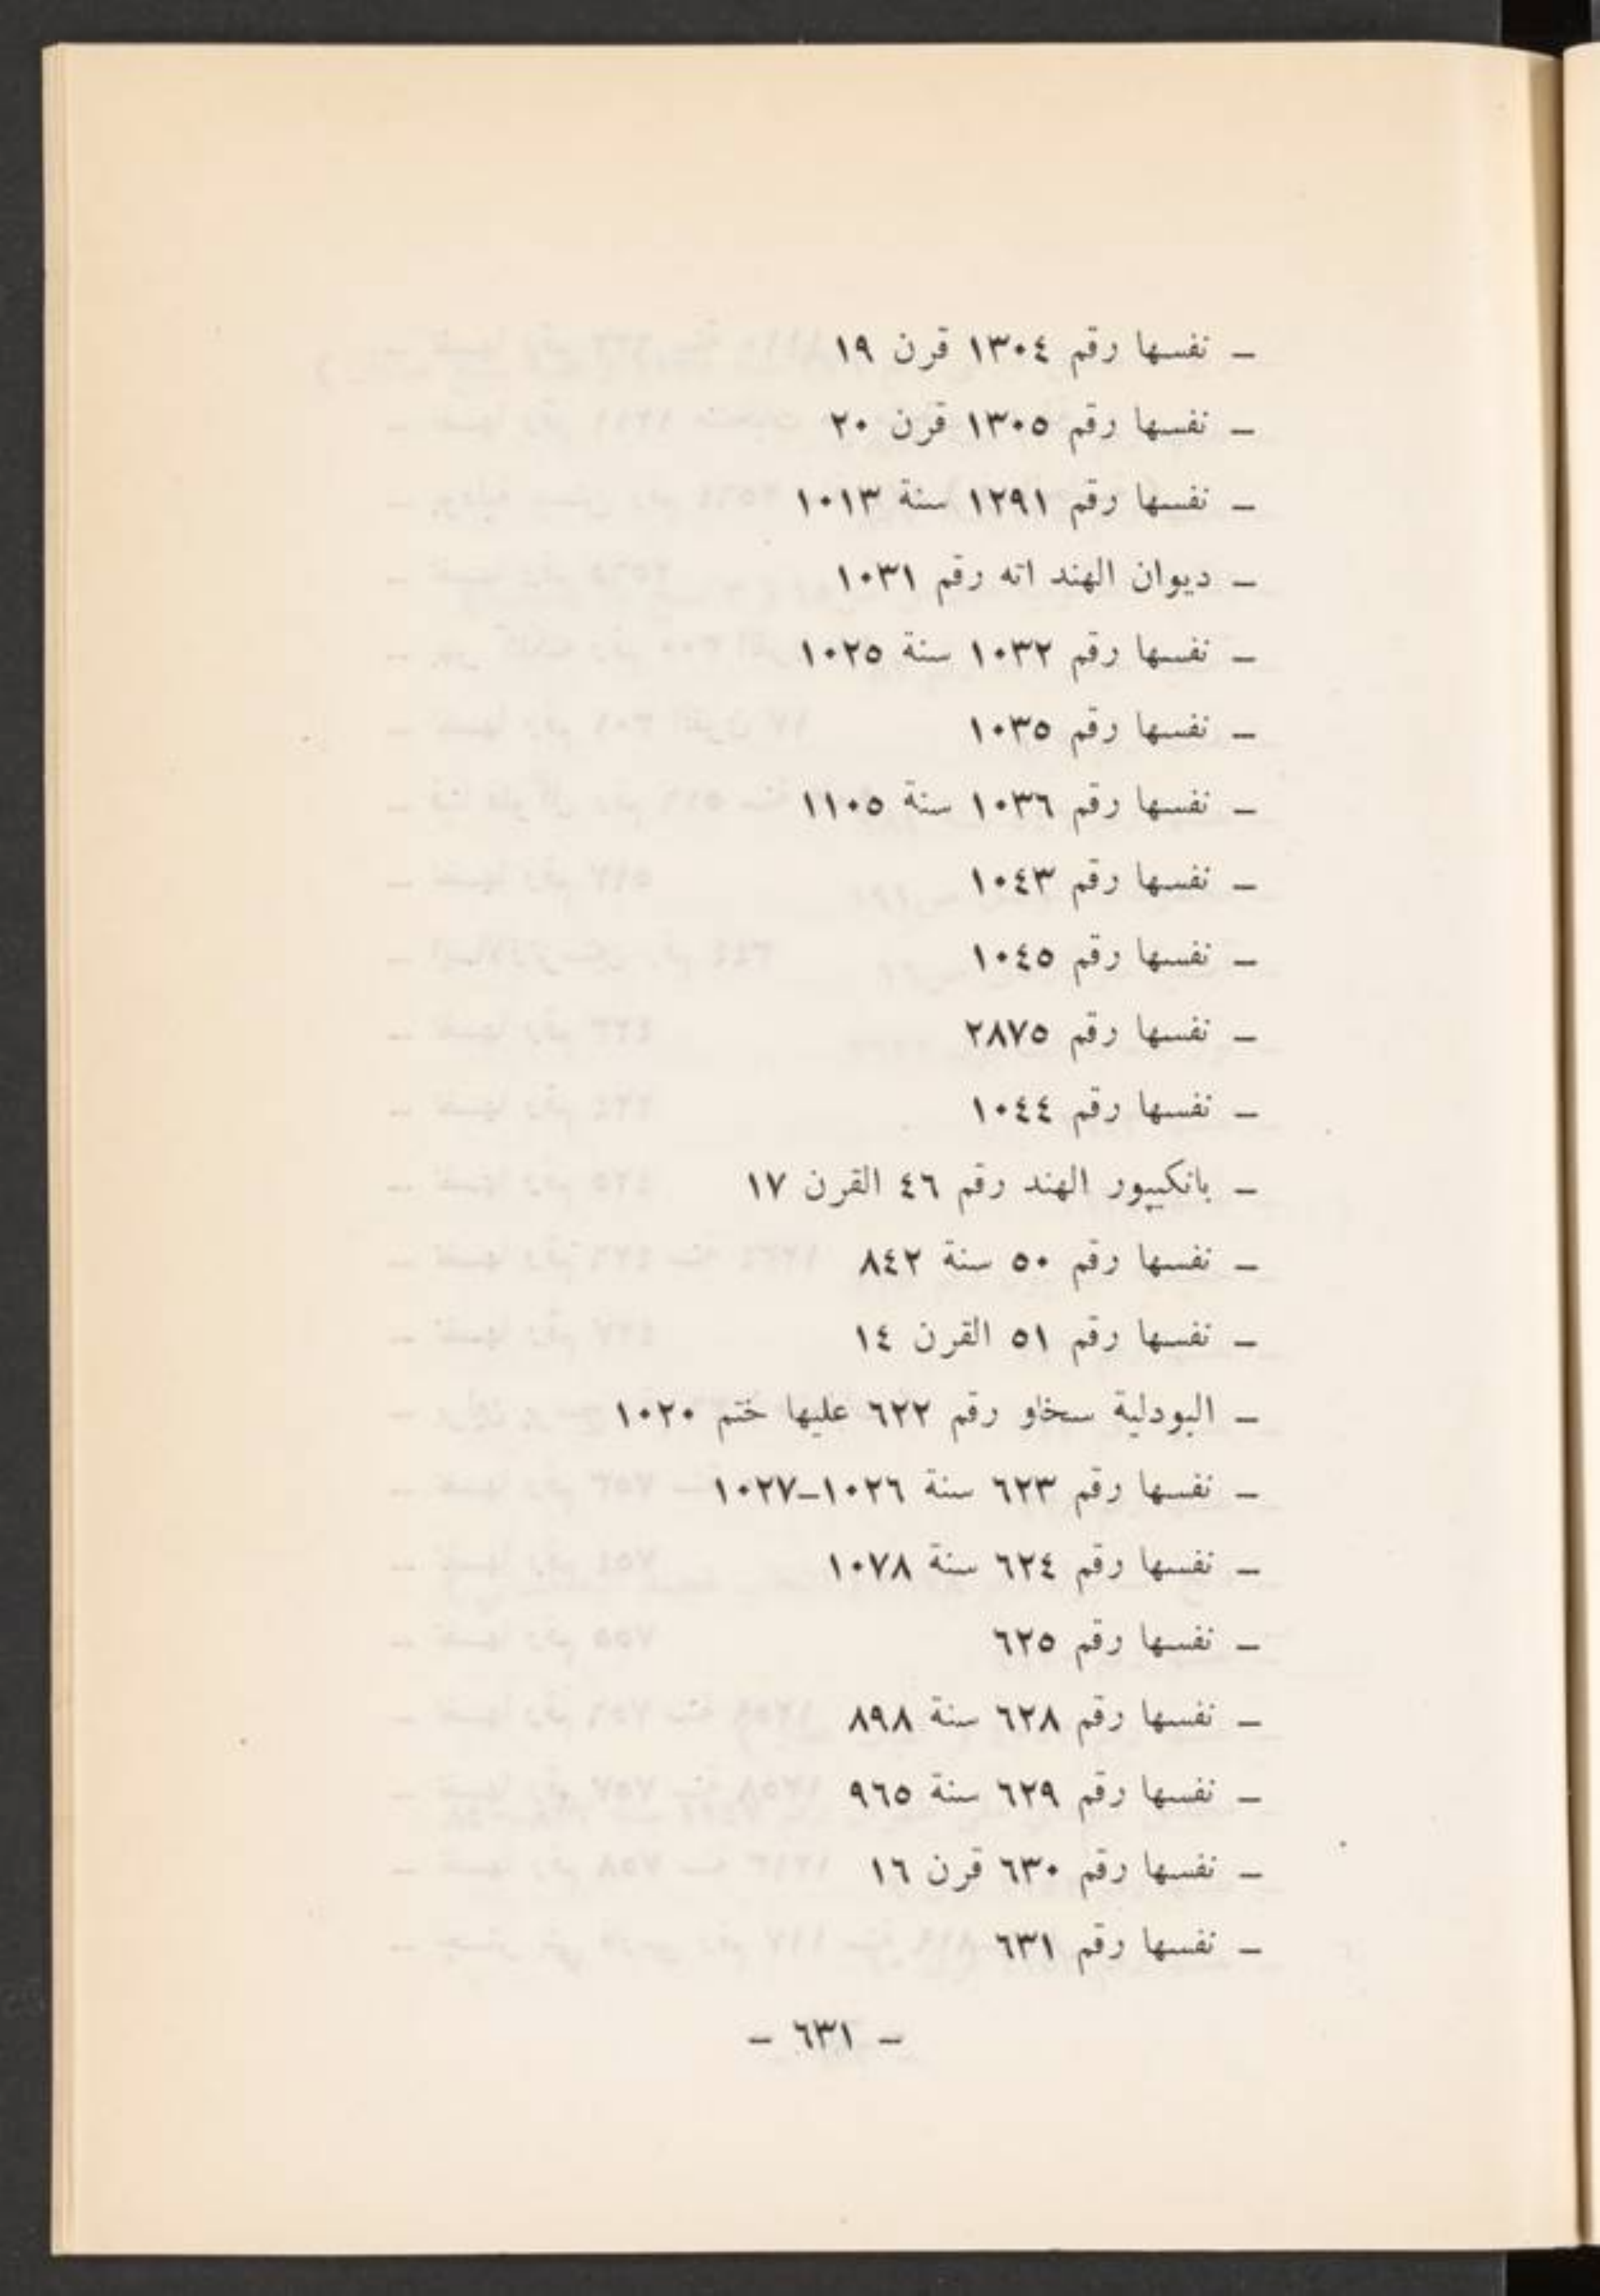 ـ نفسها رقم ١٣٠٤ قرن ١٩
ـ نفسها رقم ١٣٠٥ قرن ٢٠
ـ نفسها رقم ١٢٩١ سنة ١٠١٣
ـ ديوان الهند اته رقم ١٠٣١
ـ نفسها رقم ١٠٣٢ سنة ١٠٢٥
ـ نفسها رقم ١٠٣٥
ـ نفسها رقم ١٠٣٦ سنة ١١٠٥
ـ نفسها رقم ١٠٤٣
ـ نفسها رقم ١٠٤٥
ـ نفسها رقم ٢٨٧٥
ـ نفسها رقم ١٠٤٤
ـ بانكيپور الهند رقم ٤٦ القرن ١٧
ـ نفسها رقم ٥٠ سنة ٨٤٢
ـ نفسها رقم ٥١ القرن ١٤
ـ البودلية سخاو رقم ٦٢٢ عليها ختم ١٠٢٠
ـ نفسها رقم ٦٢٣ سنة ١٠٢٦ـ١٠٢٧
ـ نفسها رقم ٦٢٤ سنة ١٠٧٨
ـ نفسها رقم ٦٢٥
ـ نفسها رقم ٦٢٨ سنة ٨٩٨
ـ نفسها رقم ٦٢٩ سنة ٩٦٥
ـ نفسها رقم ٦٣٠ قرن ١٦
ـ نفسها رقم ٦٣١
ـ ٦٣١ ـ